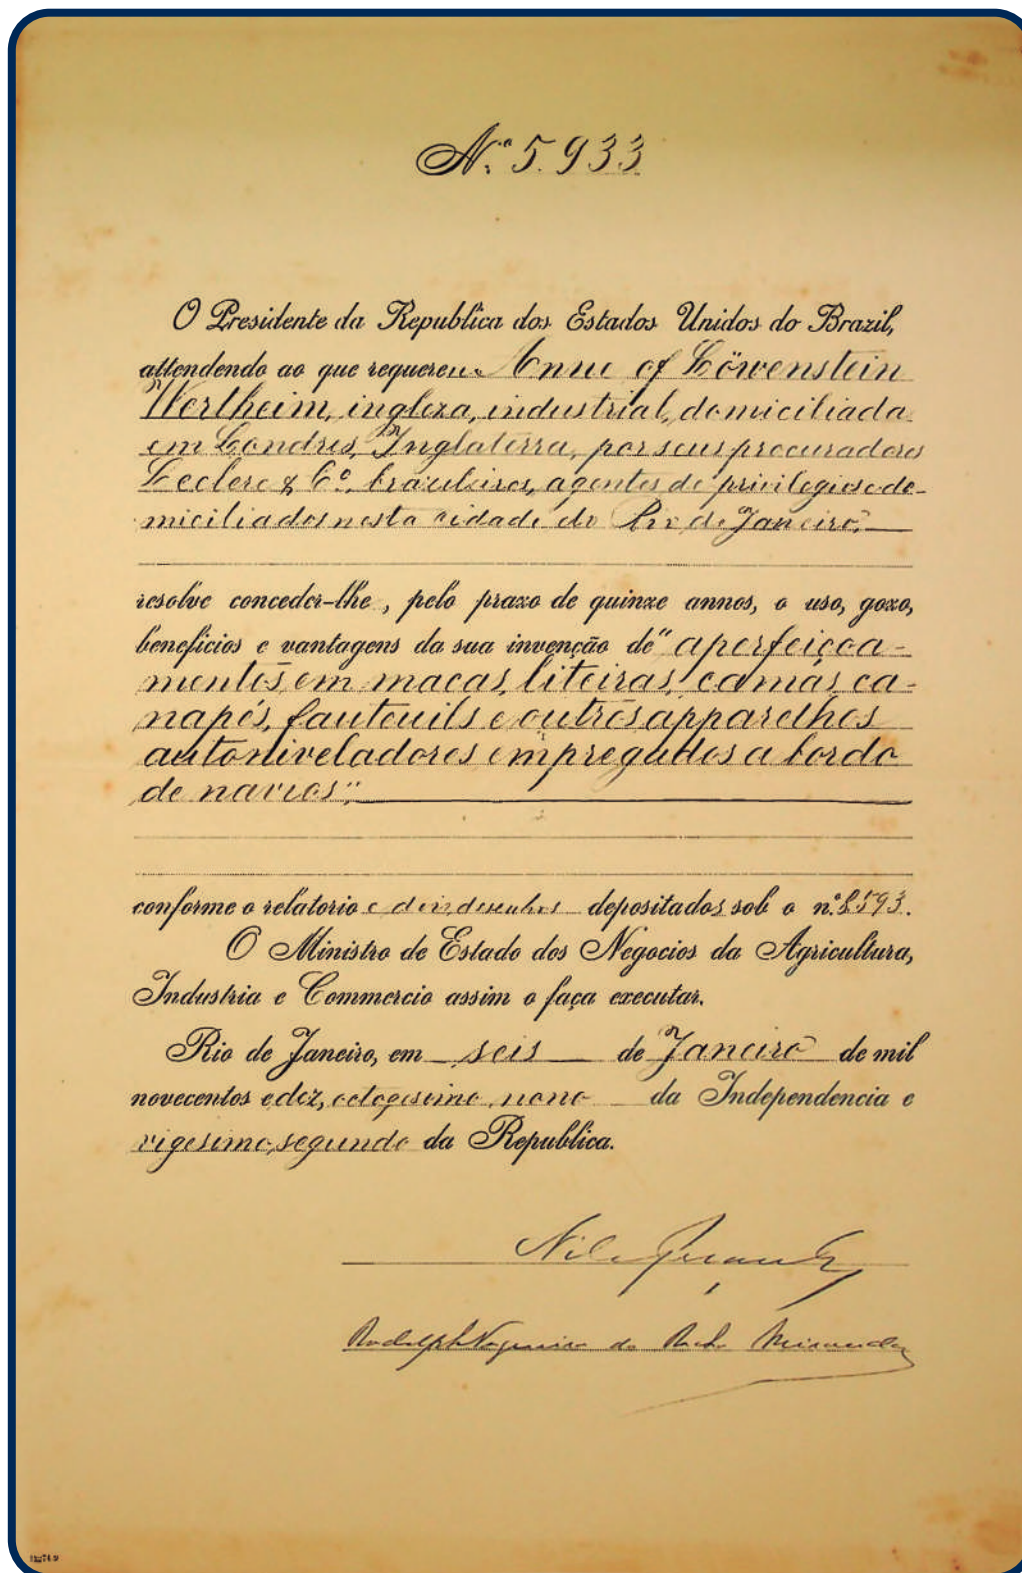 Nº 5.933
O Presidente da Republica dos Estados Unidos do Brazil,
attendendo ao que requereu Anne of Löwenstein
Wertheim, ingleza, industrial, domiciliada
em Londres, Inglaterra, por seus procuradores
Leclerc & Cº, brazileiros, agentes de privilegios e do-
miciliados nesta cidade do Rio de Janeiro,
resolve conceder-lhe, pelo prazo de quinze annos, o uso, gozo,
beneficios e vantagens da sua invenção de "aperfeiçoa-
mentos em macas, liteiras, camas, ca-
napés, fauteuils e outros apparelhos
autoniveladores empregados a bordo
de navios";
conforme o relatorio e dois desenhos depositados sob o nº 8.593.
O Ministro de Estado dos Negocios da Agricultura,
Industria e Commercio assim o faça executar.
Rio de Janeiro, em seis de Janeiro de mil
novecentos e dez, octogesimo nono da Independencia e
vigesimo segundo da Republica.
Nilo Peçanha
Rodolpho Nogueira da Rocha Miranda